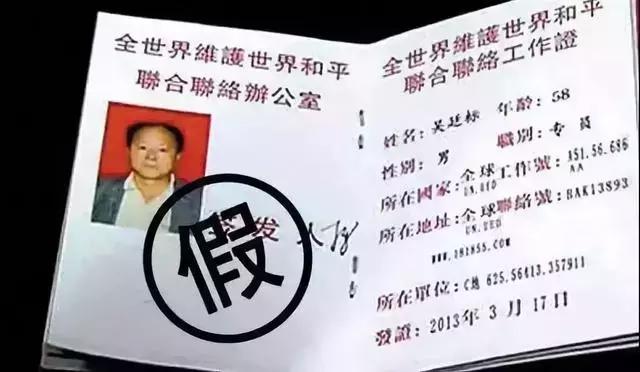 全世界維護世界和平
聯合聯絡辦公室
假
发
全世界維護世界和平
聯合聯絡工作證
姓名: 吴廷标 年齡: 58
性別: 男 職別: 专員
所在國家: 全球 工作號: A51.56.686
UN.UED AA
所在地址: 全球 聯絡號: BAK13893
UN.UED
WWW.181855.COM
所在單位: C地 625.56413.357911
發證: 2013年 3月 17日